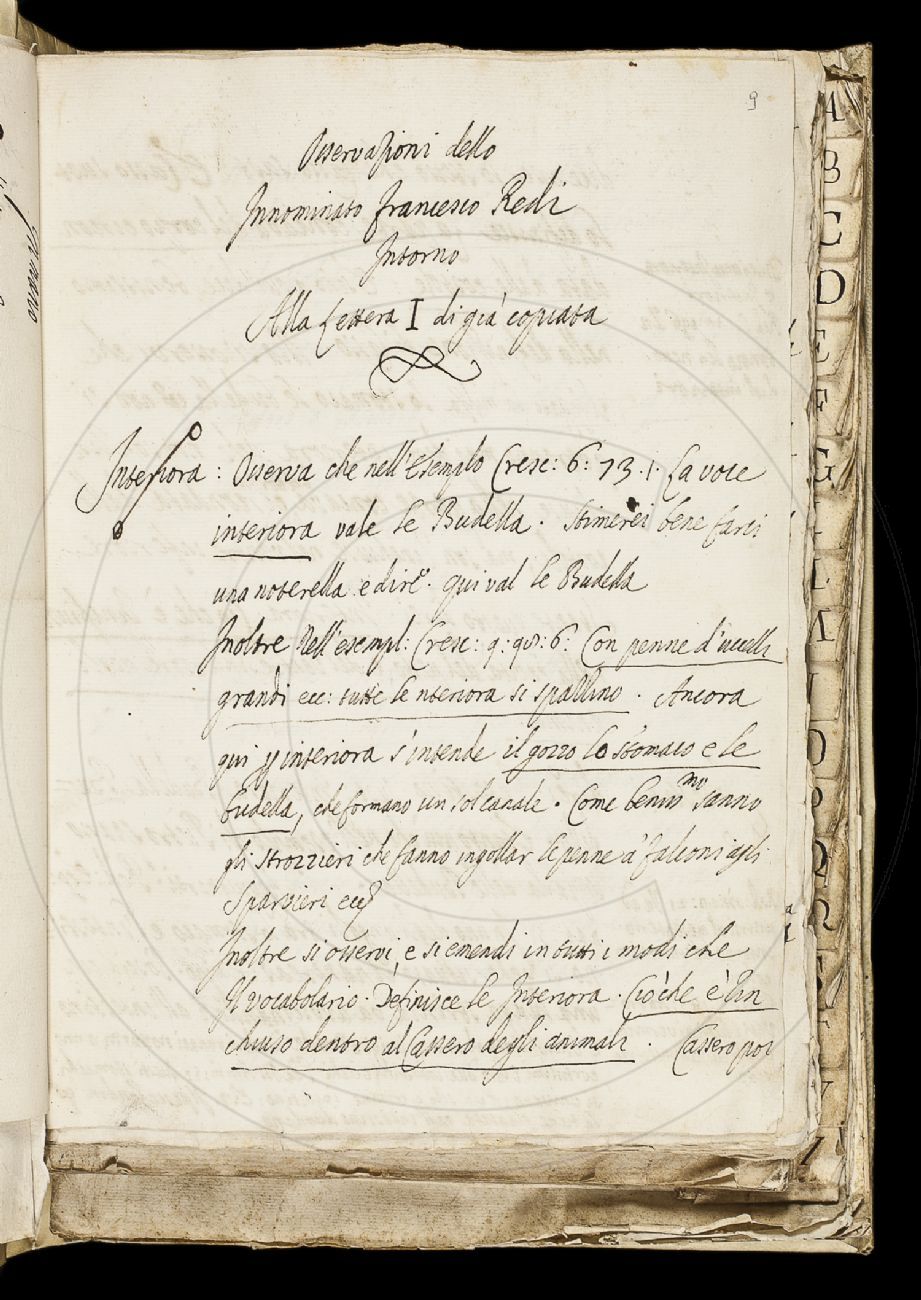 9
Osservazioni dello
Innominato Francesco Redi
Intorno
Alla Lettera I di già copiata
Interiora : Osserva che nell'Esemplo Cresc: 6: 73.1. La voce
interiora vale le Budella. Stimerei bene farci
una noterella e dire. qui val le Budella
Inoltre Nell'esempl: Cresc: 9: 90: 6: Con penne d'uccelli
grandi ecc: tutte le nteriora si spallino. Ancora
qui p interiora s'intende il gozzo lo stomaco e le
budella, che formano un sol canale. Come beniss.mo sanno
gli strozzieri che fanno ingollar le penne a' falconi agli
sparvieri ecc
Inoltre si osservi, e si emendi in tutti i modi che
Il vocabolario. Definisce le Interiora. Ciò che è Rin
chiuso dentro al Cassero degli animali. Cassero poi
A
B
C
D
E
F
G
I
L
M
N
O
P
Q
R
S
T
V
Z